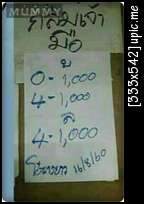 MUMMY
มือ
บ
0-1,000
4-1,000
ล
4-1,000
16/8/60
[333x542] upic.me